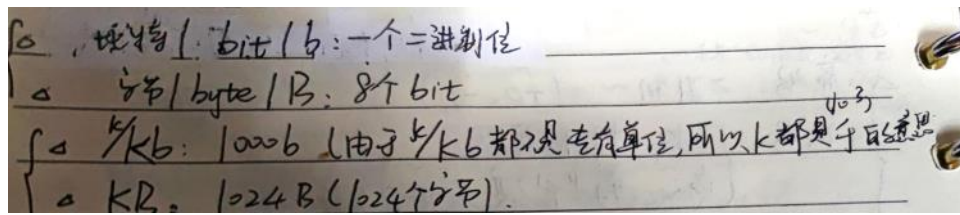 比特 / bit / b：一个二进制位
字节 / byte / B：8个bit
k/kb：1000b（由于k/kb都不是专有单位，所以k都是千的意思
(10³)
KB：1024B（1024个字节）.